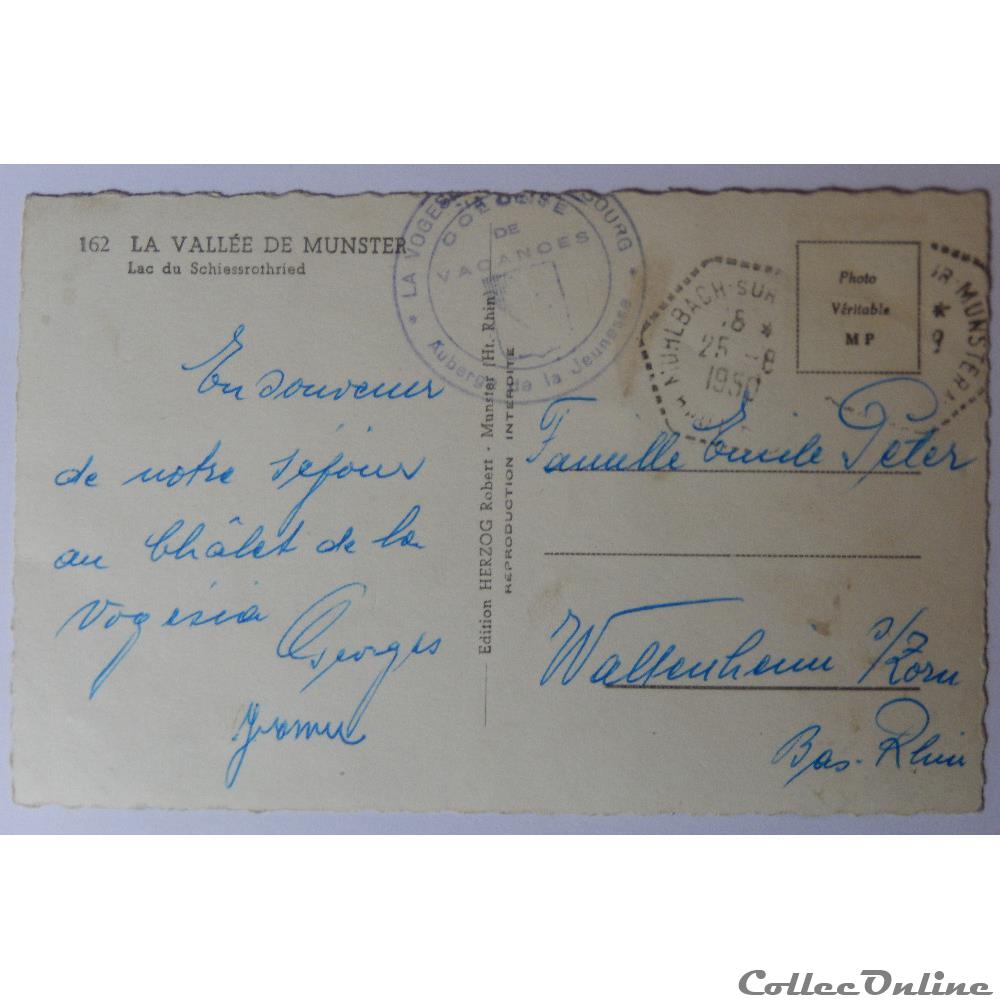 162 LA VALLÉE DE MUNSTER
Lac du Schiessrothried
En souvenir
de notre séjour
au Châlet de la
Vogésia
Georges
Edition HERZOG Robert - Munster (Ht. Rhin)
REPRODUCTION INTERDITE
LA VOGES
DE
VACANCES
Auberge de la Jeunesse
MUHLBACH-SUR
18 *
25 -8
1950
Photo
Véritable
MP
R-MUNSTER
*
Famille Emile Peter
Waltenheim s/Zorn
Bas-Rhin
CollecOnline